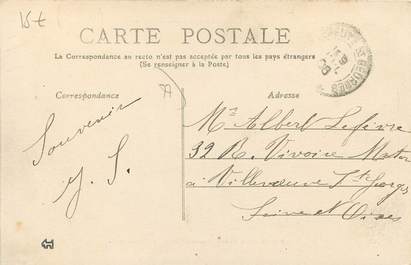 15€
CARTE POSTALE
La Correspondance au recto n'est pas acceptée par tous les pays étrangers
(Se renseigner à la Poste)
Correspondance
77
Adresse
Souvenir
Y. S.
Mr Albert Lefèvre
32 R.
à Villeneuve St Georges
Seine et Oise